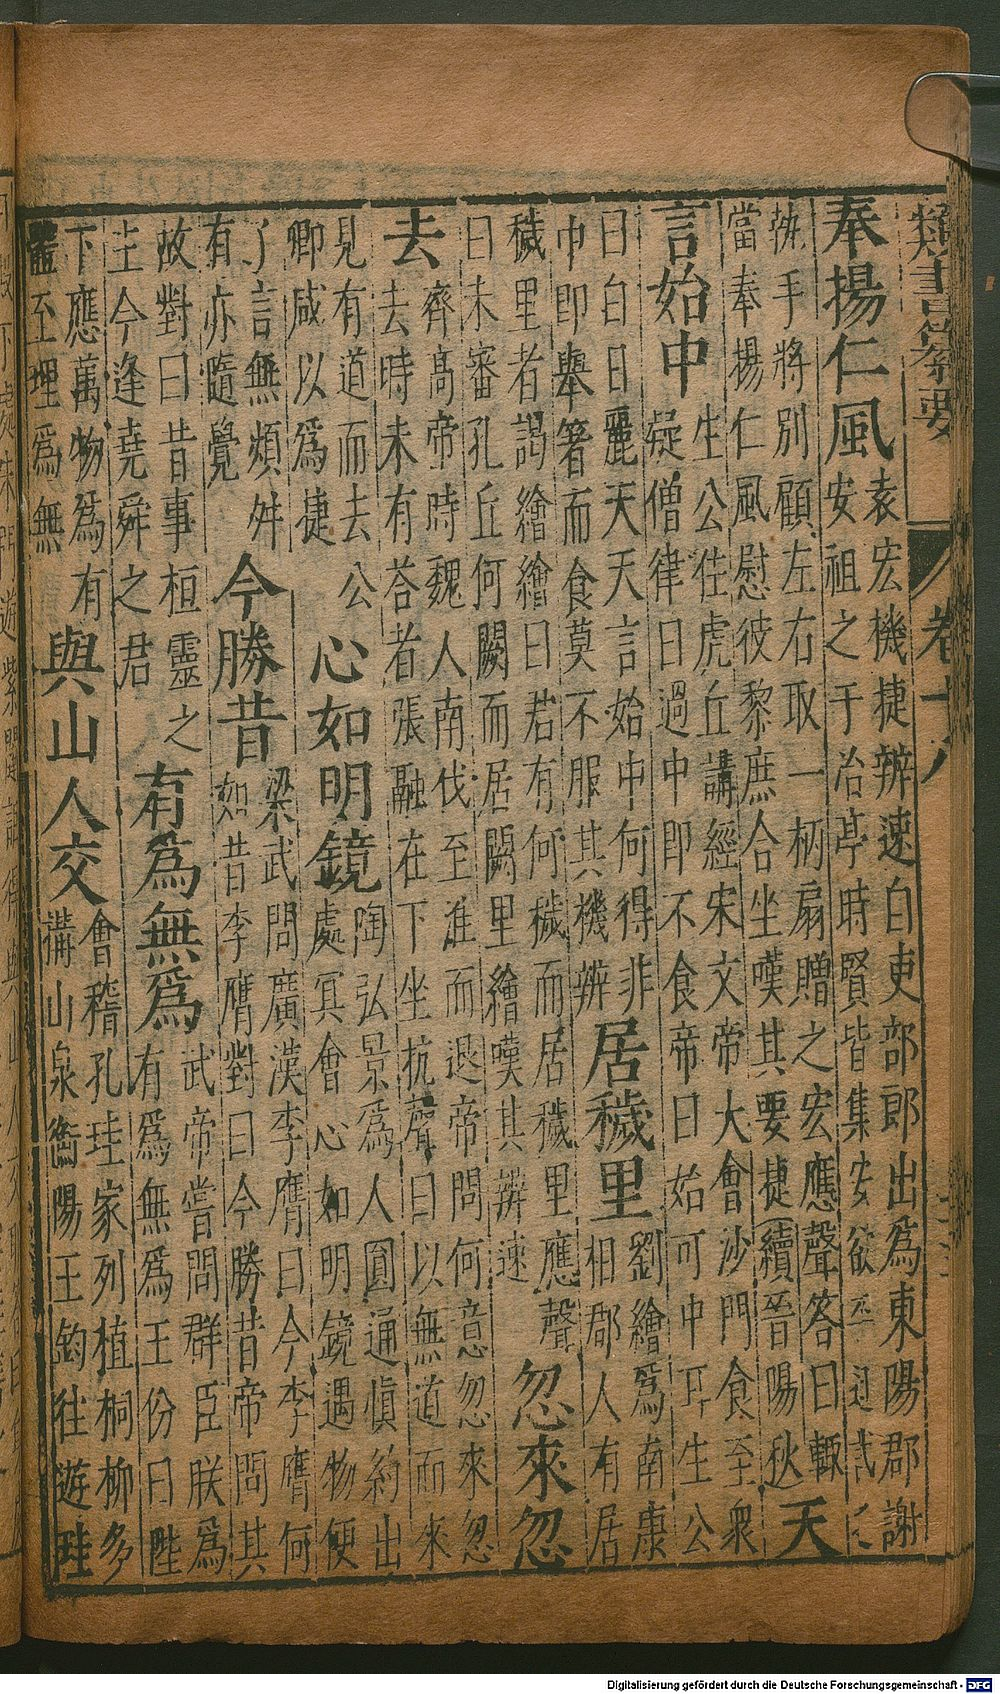 類書纂要 卷十八
奉揚仁風
袁宏機捷辨速白吏部郎出爲東陽郡謝
安祖之于冶亭時賢皆集安欲卒迫試之
執手將別顧左右取一柄扇贈之宏應聲答曰輙
當奉揚仁風慰彼黎庶合坐嘆其要捷續晉陽秋
天
言始中
生公住虎丘講經宋文帝大會沙門食至衆
疑僧律日過中即不食帝曰始可中耳生公
曰白日麗天天言始中何得非
中即舉箸而食莫不服其機辨
居穢里
劉繪爲南康
相郡人有居
穢里者謁繪繪曰若有何穢而居穢里應聲
曰未審孔丘何闕而居闕里繪嘆其辨速
忽來忽
去
齊高帝時魏人南伐至淮而退帝問何意忽來忽
去時未有荅者張融在下坐抗聲曰以無道而來
見有道而去公
卿咸以爲捷
心如明鏡
陶弘景爲人圓通慎約出
處冥會心如明鏡遇物便
了言無煩舛
有亦隨覺
今勝昔
梁武問廣漢李膺曰今李膺何
如昔李膺對曰今勝昔帝問其
故對曰昔事桓靈之
主今逢堯舜之君
有爲無爲
武帝嘗問群臣朕爲
有爲無爲王份曰陛
下應萬物爲有
體至理爲無
與山人交
會稽孔珪家列植桐柳多
構山泉衡陽王鈞往遊珪
Digitalisierung gefördert durch die Deutsche Forschungsgemeinschaft - DFG